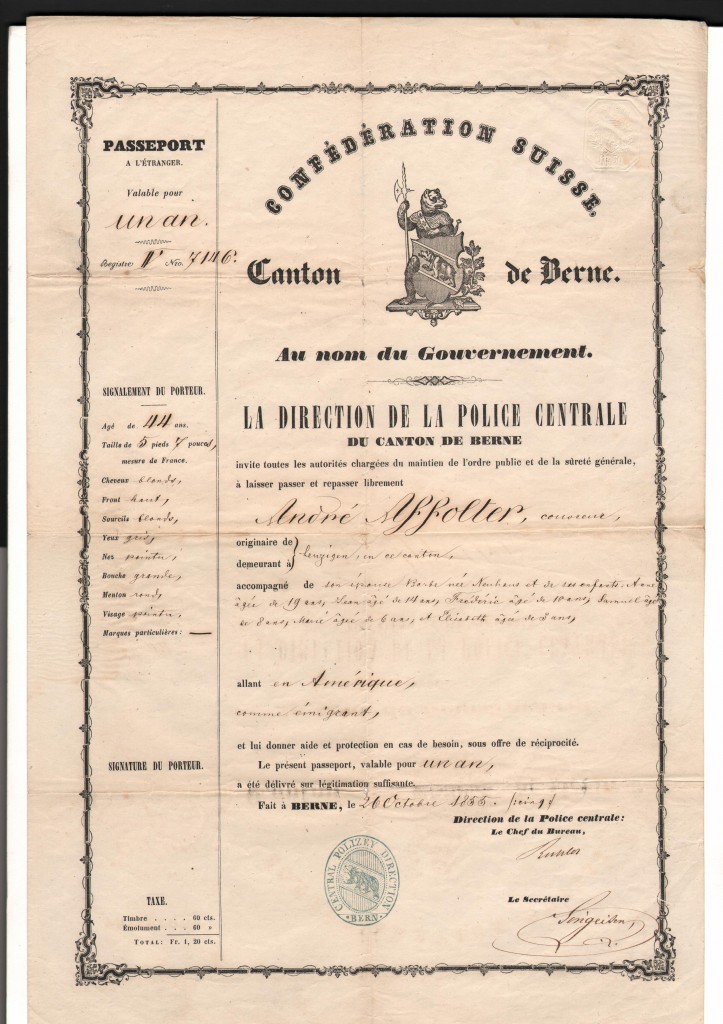 PASSEPORT
A L'ÉTRANGER.
Valable pour
un an.
Registre IV Nro. 7146.
SIGNALEMENT DU PORTEUR.
Agé de 44 ans.
Taille de 5 pieds 7 pouces,
mesure de France.
Cheveux blonds,
Front haut,
Sourcils blonds,
Yeux gris,
Nez pointu,
Bouche grande,
Menton rond,
Visage pointu,
Marques particulières: —
SIGNATURE DU PORTEUR.
TAXE.
Timbre . . . . 60 cts.
Émolument . . . 60 »
TOTAL: Fr. 1, 20 cts.
CONFÉDÉRATION SUISSE,
Canton de Berne.
Au nom du Gouvernement.
LA DIRECTION DE LA POLICE CENTRALE
DU CANTON DE BERNE
invite toutes les autorités chargées du maintien de l'ordre public et de la sûreté générale,
à laisser passer et repasser librement
André Affolter, couvreur,
originaire de
demeurant à
Leuzigen, en ce canton,
accompagné de son épouse Barbe née Neuhaus et de ses enfants: Anne
âgée de 19 ans, Jean âgé de 14 ans, Frédéric âgé de 10 ans, Samuel âgé
de 8 ans, Marie âgée de 6 ans, et Elisabeth âgée de 3 ans,
allant en Amérique,
comme émigrant,
et lui donner aide et protection en cas de besoin, sous offre de réciprocité.
Le présent passeport, valable pour un an,
a été délivré sur légitimation suffisante.
Fait à BERNE, le 26 Octobre 1855.
Direction de la Police centrale:
Le Chef du Bureau,
CENTRAL POLIZEY DIRECTION
BERN
Le Secrétaire